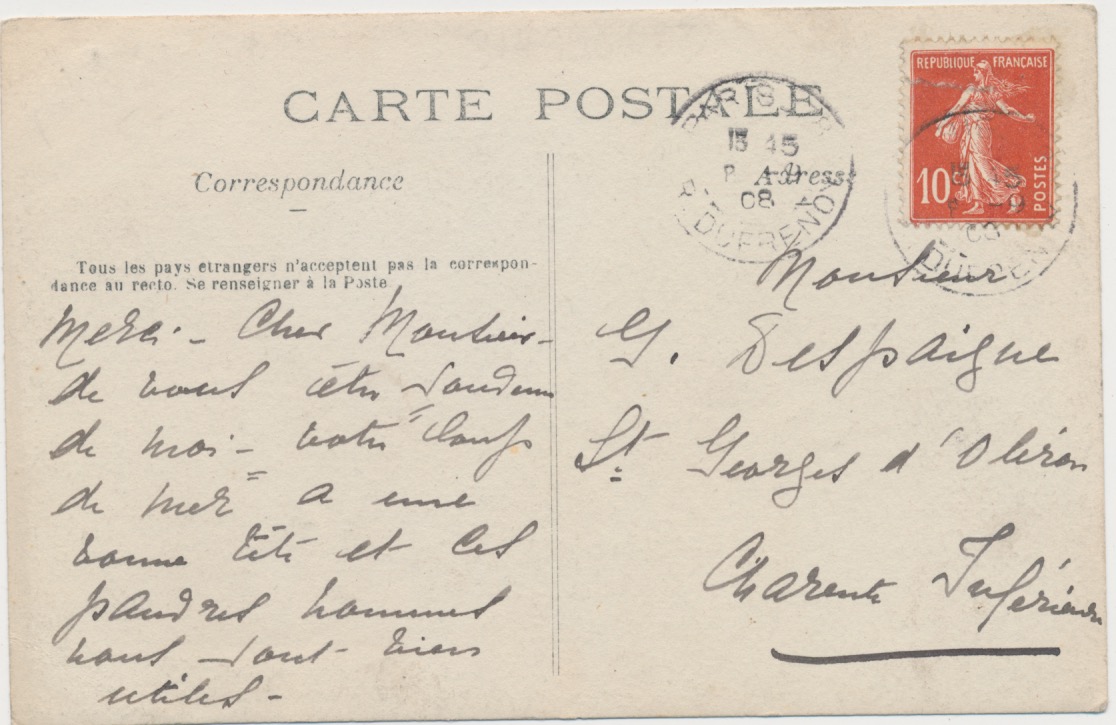 CARTE POSTALE
Correspondance
Adresse
Tous les pays étrangers n'acceptent pas la correspon-
dance au recto. Se renseigner à la Poste.
REPUBLIQUE FRANÇAISE
10 c
POSTES
PARIS
13 45
9
08
R. DUFRENOY
Merci - Cher Monsieur -
de vous être souvenu
de moi - votre "Loup
de mer" a une
bonne tête et ces
pauvres hommes
nous sont bien
utiles -
Monsieur
G. Despaigne
St Georges d'Oléron
Charente Inférieure